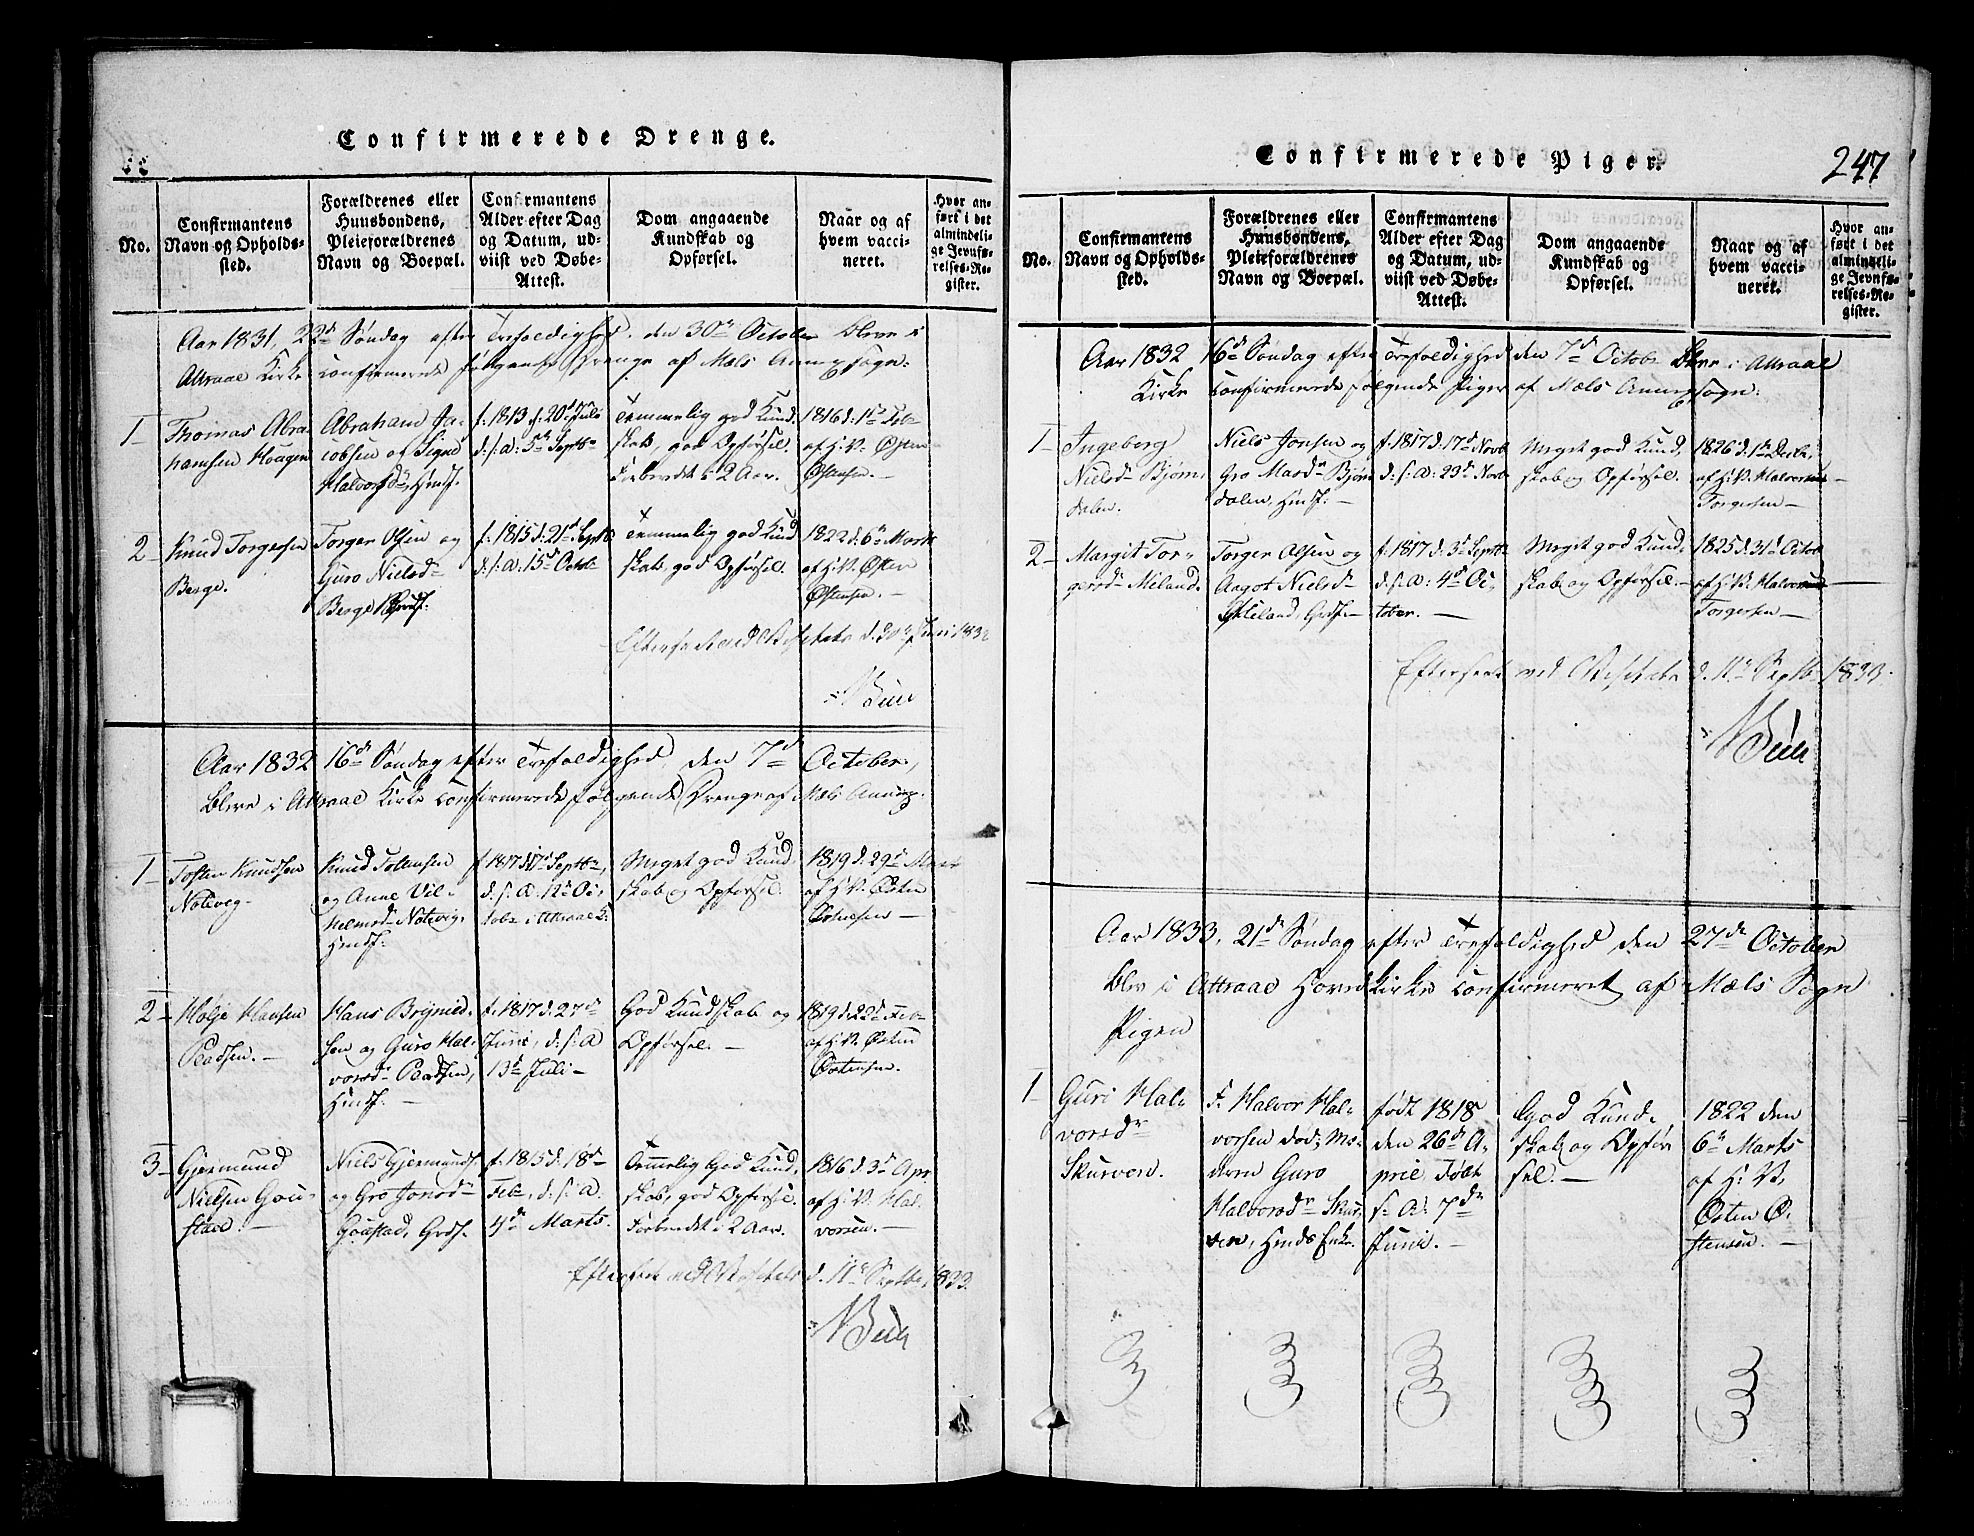 Confirmerede Drenge.
No.
Confirmantens
Navn og Opholds-
sted.
Forældrenes eller
Huusbondens,
Pleieforældrenes
Navn og Boepæl.
Confirmantens
Alder efter Dag
og Datum, ud-
viist ved Døbe-
Attest.
Dom angaaende
Kundskab og
Opførsel.
Naar og af
hvem vacci-
neret.
Hvor an-
ført i det
almindeli-
ge Jevnfø-
relses-Re-
gister.
Aar 1831, 22d Søndag efter Trefoldighed, den 30te October bleve i
Attraae Kirke confirmerede følgende Drenge af Mæls Annexsogn:
1
Thomas Abra
hamsen Hougen
Abraham Ja-
cobsen og Signe
Halvorsd. Hmdf.
f. 1813 d. 20d Juli
d. s. a. 5te Septb
Temmelig god Kund
skab, god Opførsel.
Forberedt i 2 Aar.
1816 d. 1te Feb
af H. V. Østen
Østensen.
2
Knud Torgersen
Berge.
Torger Olsen og
Guro Nielsd
Berge
f. 1815 d. 21d Septb
d. s. a. 15d Octb
Temmelig god Kund
skab, god Opførsel.
1822 d. 6te Marts
af H. V. Østen
Østensen.
Efterseet ved Visitats d. 30te Juni 1832
N Buch
Aar 1832 16de Søndag efter Trefoldighed, den 7d October,
bleve i Attraae Kirke confirmerede følgende Drenge af Mæls Annex.
1
Tosten Knudsen
Noteveg
Knud Tollevsen
og Anne Vil-
helmsd. Notevig,
Hmdf.
f. 1817 d. 17d Septb,
d. s. a. 12te Oc-
tob i Attraae K.
Meget god Kund
skab og Opførsel.
1819 d. 29d Marts
af H. V. Østen
Østensen
2
Hølje Hansen
Hans Brynild-
sen og Guro Hal-
vorsd.
Hmdf.
f. 1817 d. 27de
Juni, d. s. a
13d Juli
God Kundskab og
Opførsel.
1819 d. 22d Feb
af H. V. Østen
Østensen
3
Gjermund
Nielsen Gou-
stad.
Niels Gjermunds.
og Gro Jonsd
Goustad, Grdf.
f. 1815 d. 18d
Feb, d. s. a.
4de Marts.
Temmelig God Kund,
skab, god Opførsel.
Forberedt i 2 Aar.
1816 d. 3d Apr
af H. V. Hal-
vorsen.
Efterseet ved Visitats d. 11te Septb. 1833.
N Buch
Confirmerede Piger.
247
No.
Confirmantens
Navn og Opholds-
sted.
Forældrenes eller
Huusbondens,
Pleieforældrenes
Navn og Boepæl.
Confirmantens
Alder efter Dag
og Datum, ud-
viist ved Døbe-
Attest.
Dom angaaende
Kundskab og
Opførsel.
Naar og af
hvem vacci-
neret.
Hvor an-
ført i det
almindeli-
ge Jevnfø-
relses-Re-
gister.
Aar 1832 16d Søndag efter Trefoldighed den 7d Octobr bleve i Attraae
Kirke confirmerede følgende Piger af Mæls Annexsogn:
1
Ingeborg
Nielsd Bjørn,
dalen.
Niels Jonsen og
Gro Marsd Bjørn
dalen, Hmdf.
f. 1817 d. 17d Novb
d. s. a. 23d Novb
Meget god Kund,
skab og Opførsel.
1826 d. 1te Decb.
af H. V. Halvor
Torgersen
2
Margit Tor-
gersd. Mæland.
Torger Olsen og
Aagot Nielsd
Mæland, Grdf.
f. 1817 d. 3d Septb
d. s. a. 4d Oc-
tober.
Meget god Kund
skab og Opførsel.
1825 d. 31d Octob
af H. V. Halvor
Torgersen
Efterseet ved Visitats d. 11te Septb 1833.
N Buch
Aar 1833, 21de Søndag efter Trefoldighed den 27de October
blev i Attraae Hovedkirke confirmeret af Mæls Sogn
Pigen
1
Guri Hal-
vorsdr
Skurven.
F. Halvor Hal-
vorsen død; Mo-
deren Guro
Halvorsdr Skur,
ven, Hmds Enke.
født 1818
den 26de A-
pril, døbt
s. A. 7de
Juni.
God Kund-
skab og Opfør
sel.
1822 den
6te Marts
af H. V.
Østen Ø-
stensen.